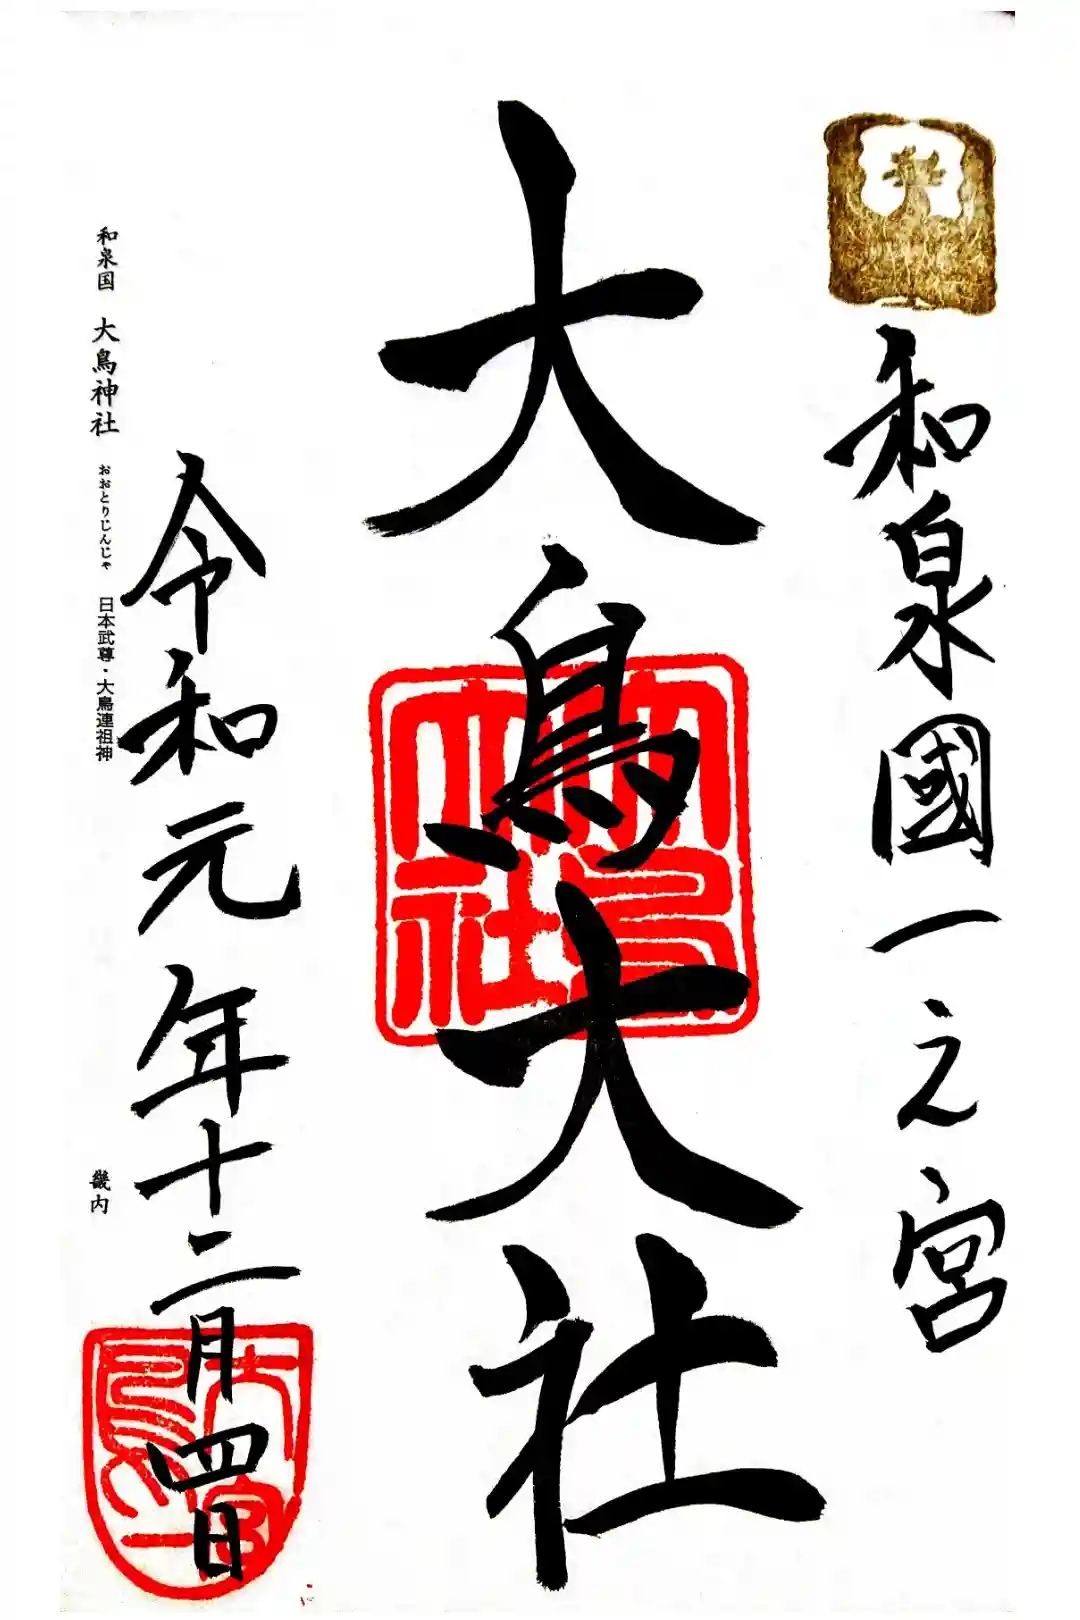 和泉國一之宮
大鳥大社
大鳥大社
令和元年十二月四日
和泉国 大鳥神社 おおとりじんじゃ 日本武尊・大鳥連祖神
畿内